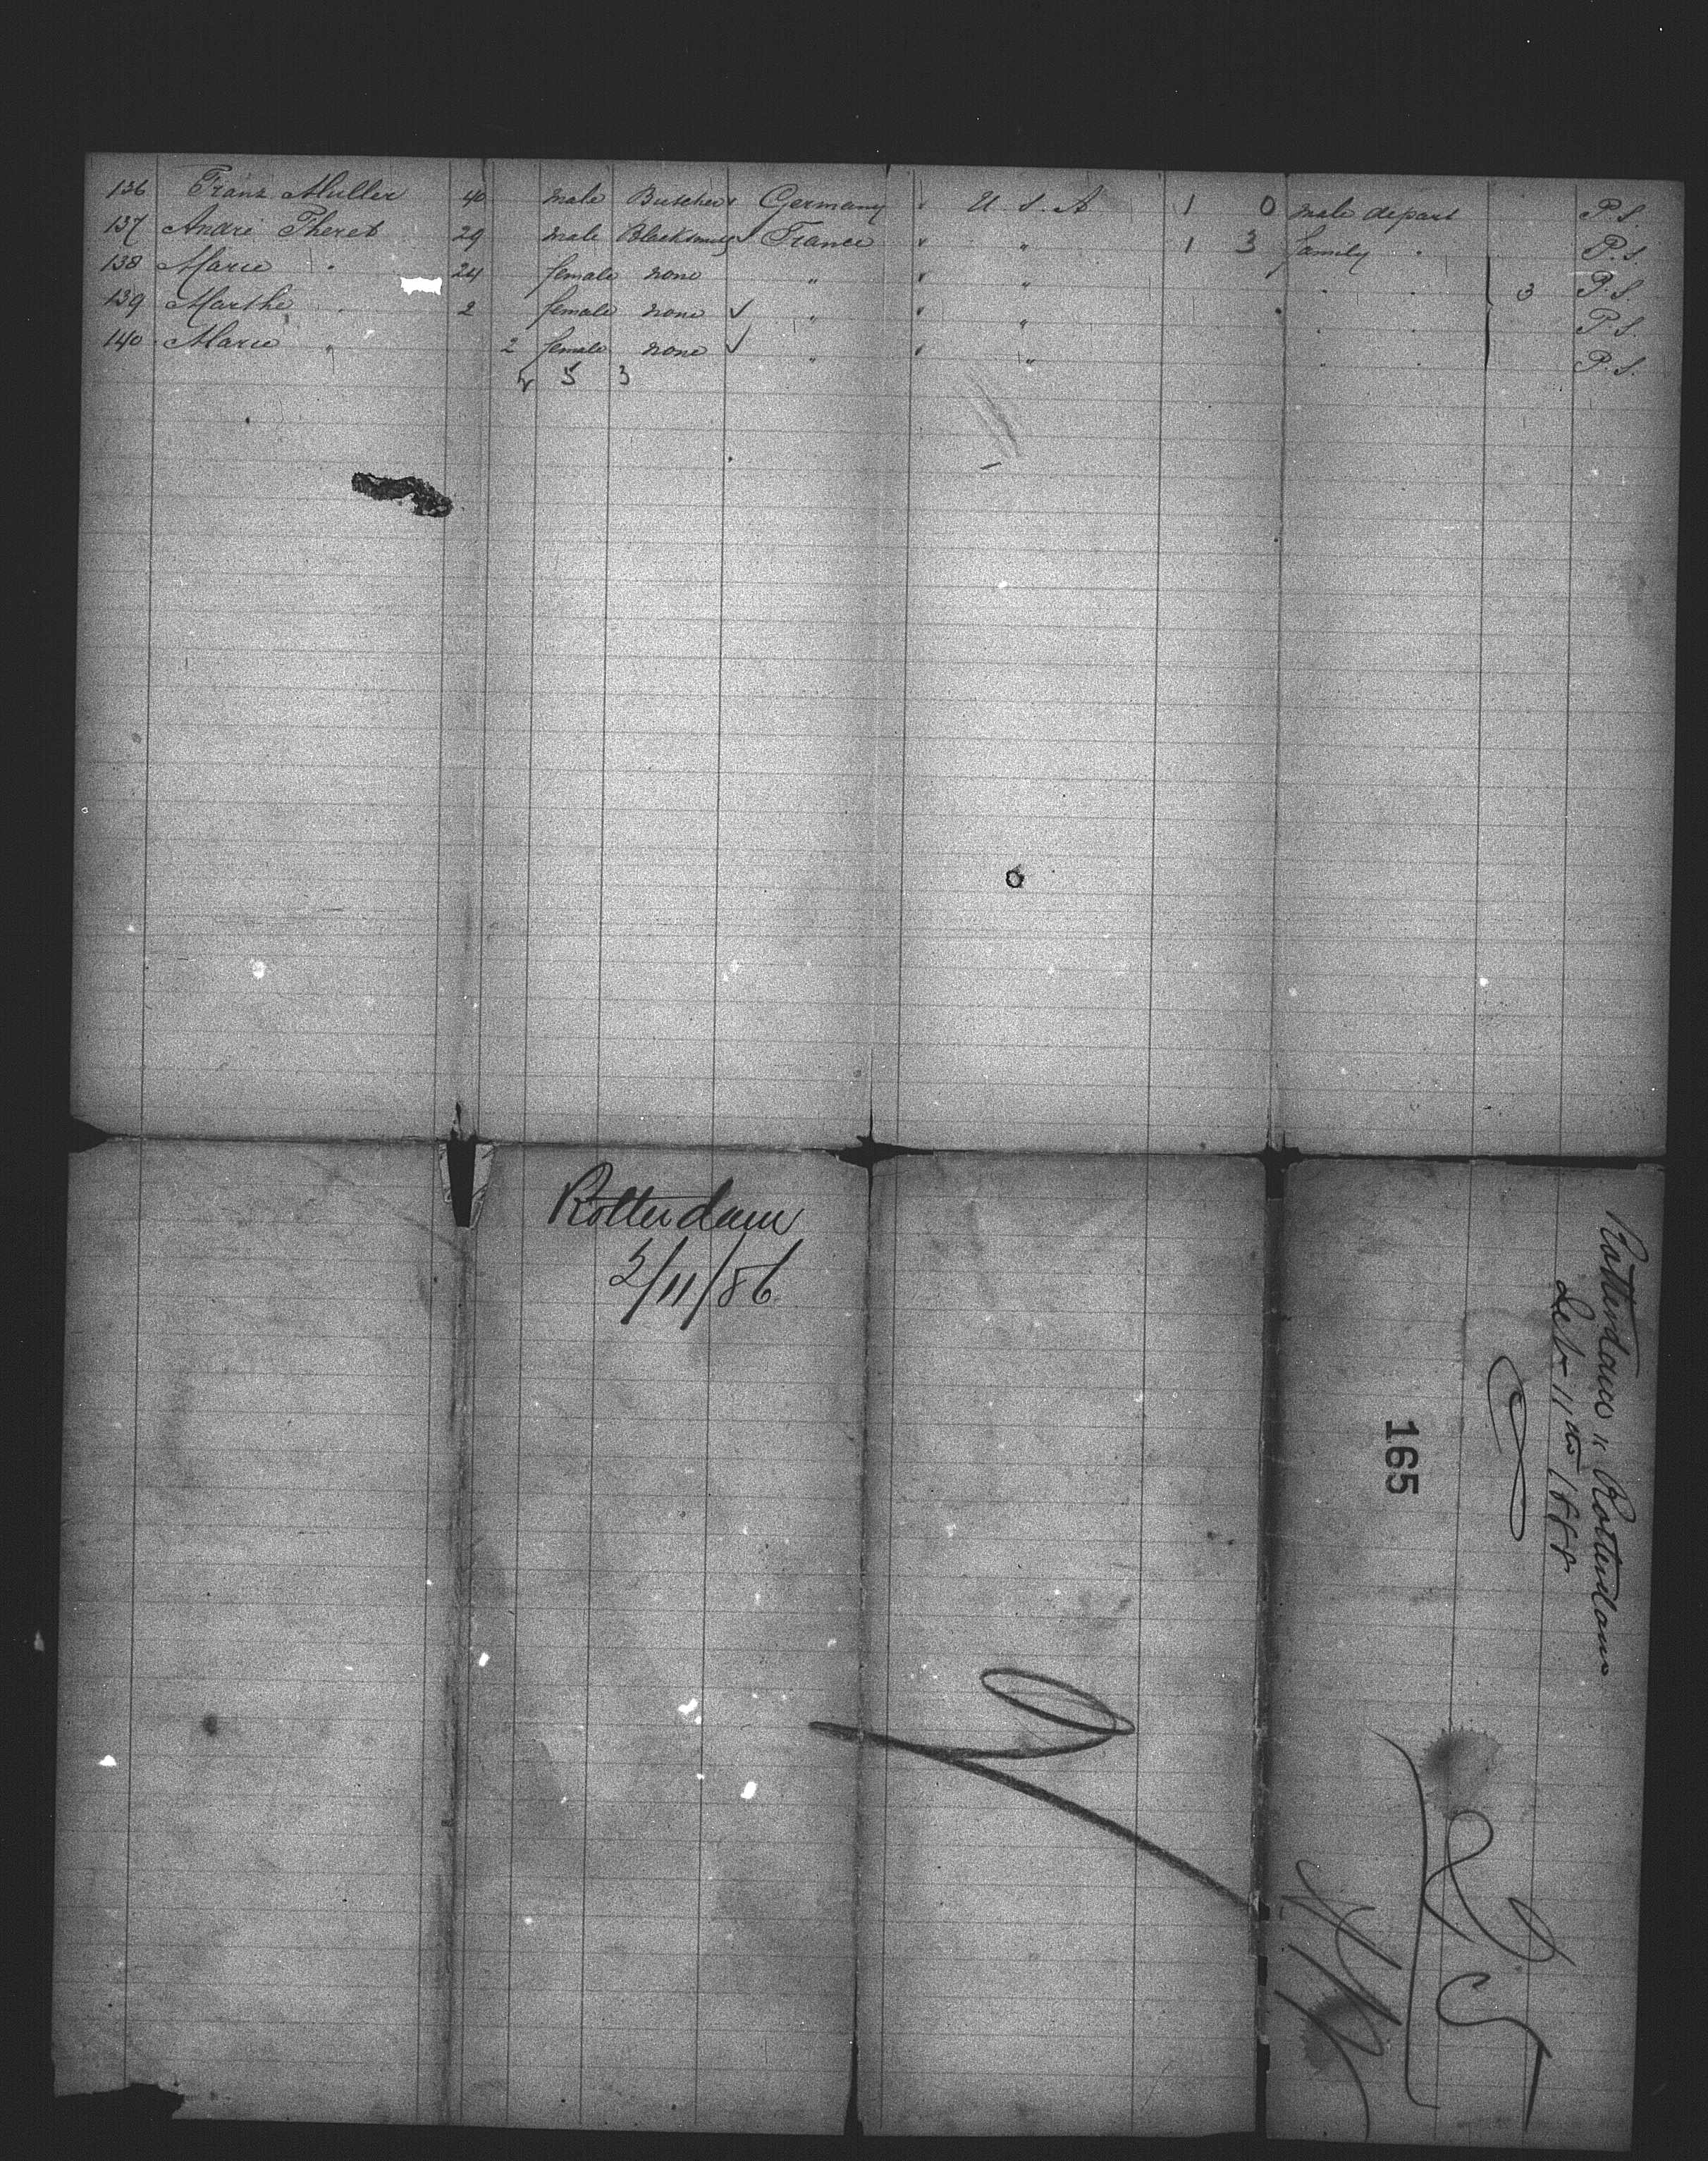 136 Franz Muller 40 male Butcher Germany U. S. A 1 0 male depart P.S.
137 André Theret 29 male Blacksmith France " 1 3 family " P.S.
138 Marie " 24 female none " " " " 3 P.S.
139 Marthe " 2 female none ✓ " " " " P.S.
140 Marie " 2 female none ✓ " " " " P.S.
5 3
Rotterdam
2/11/86
Rotterdam " Rotterdam
165